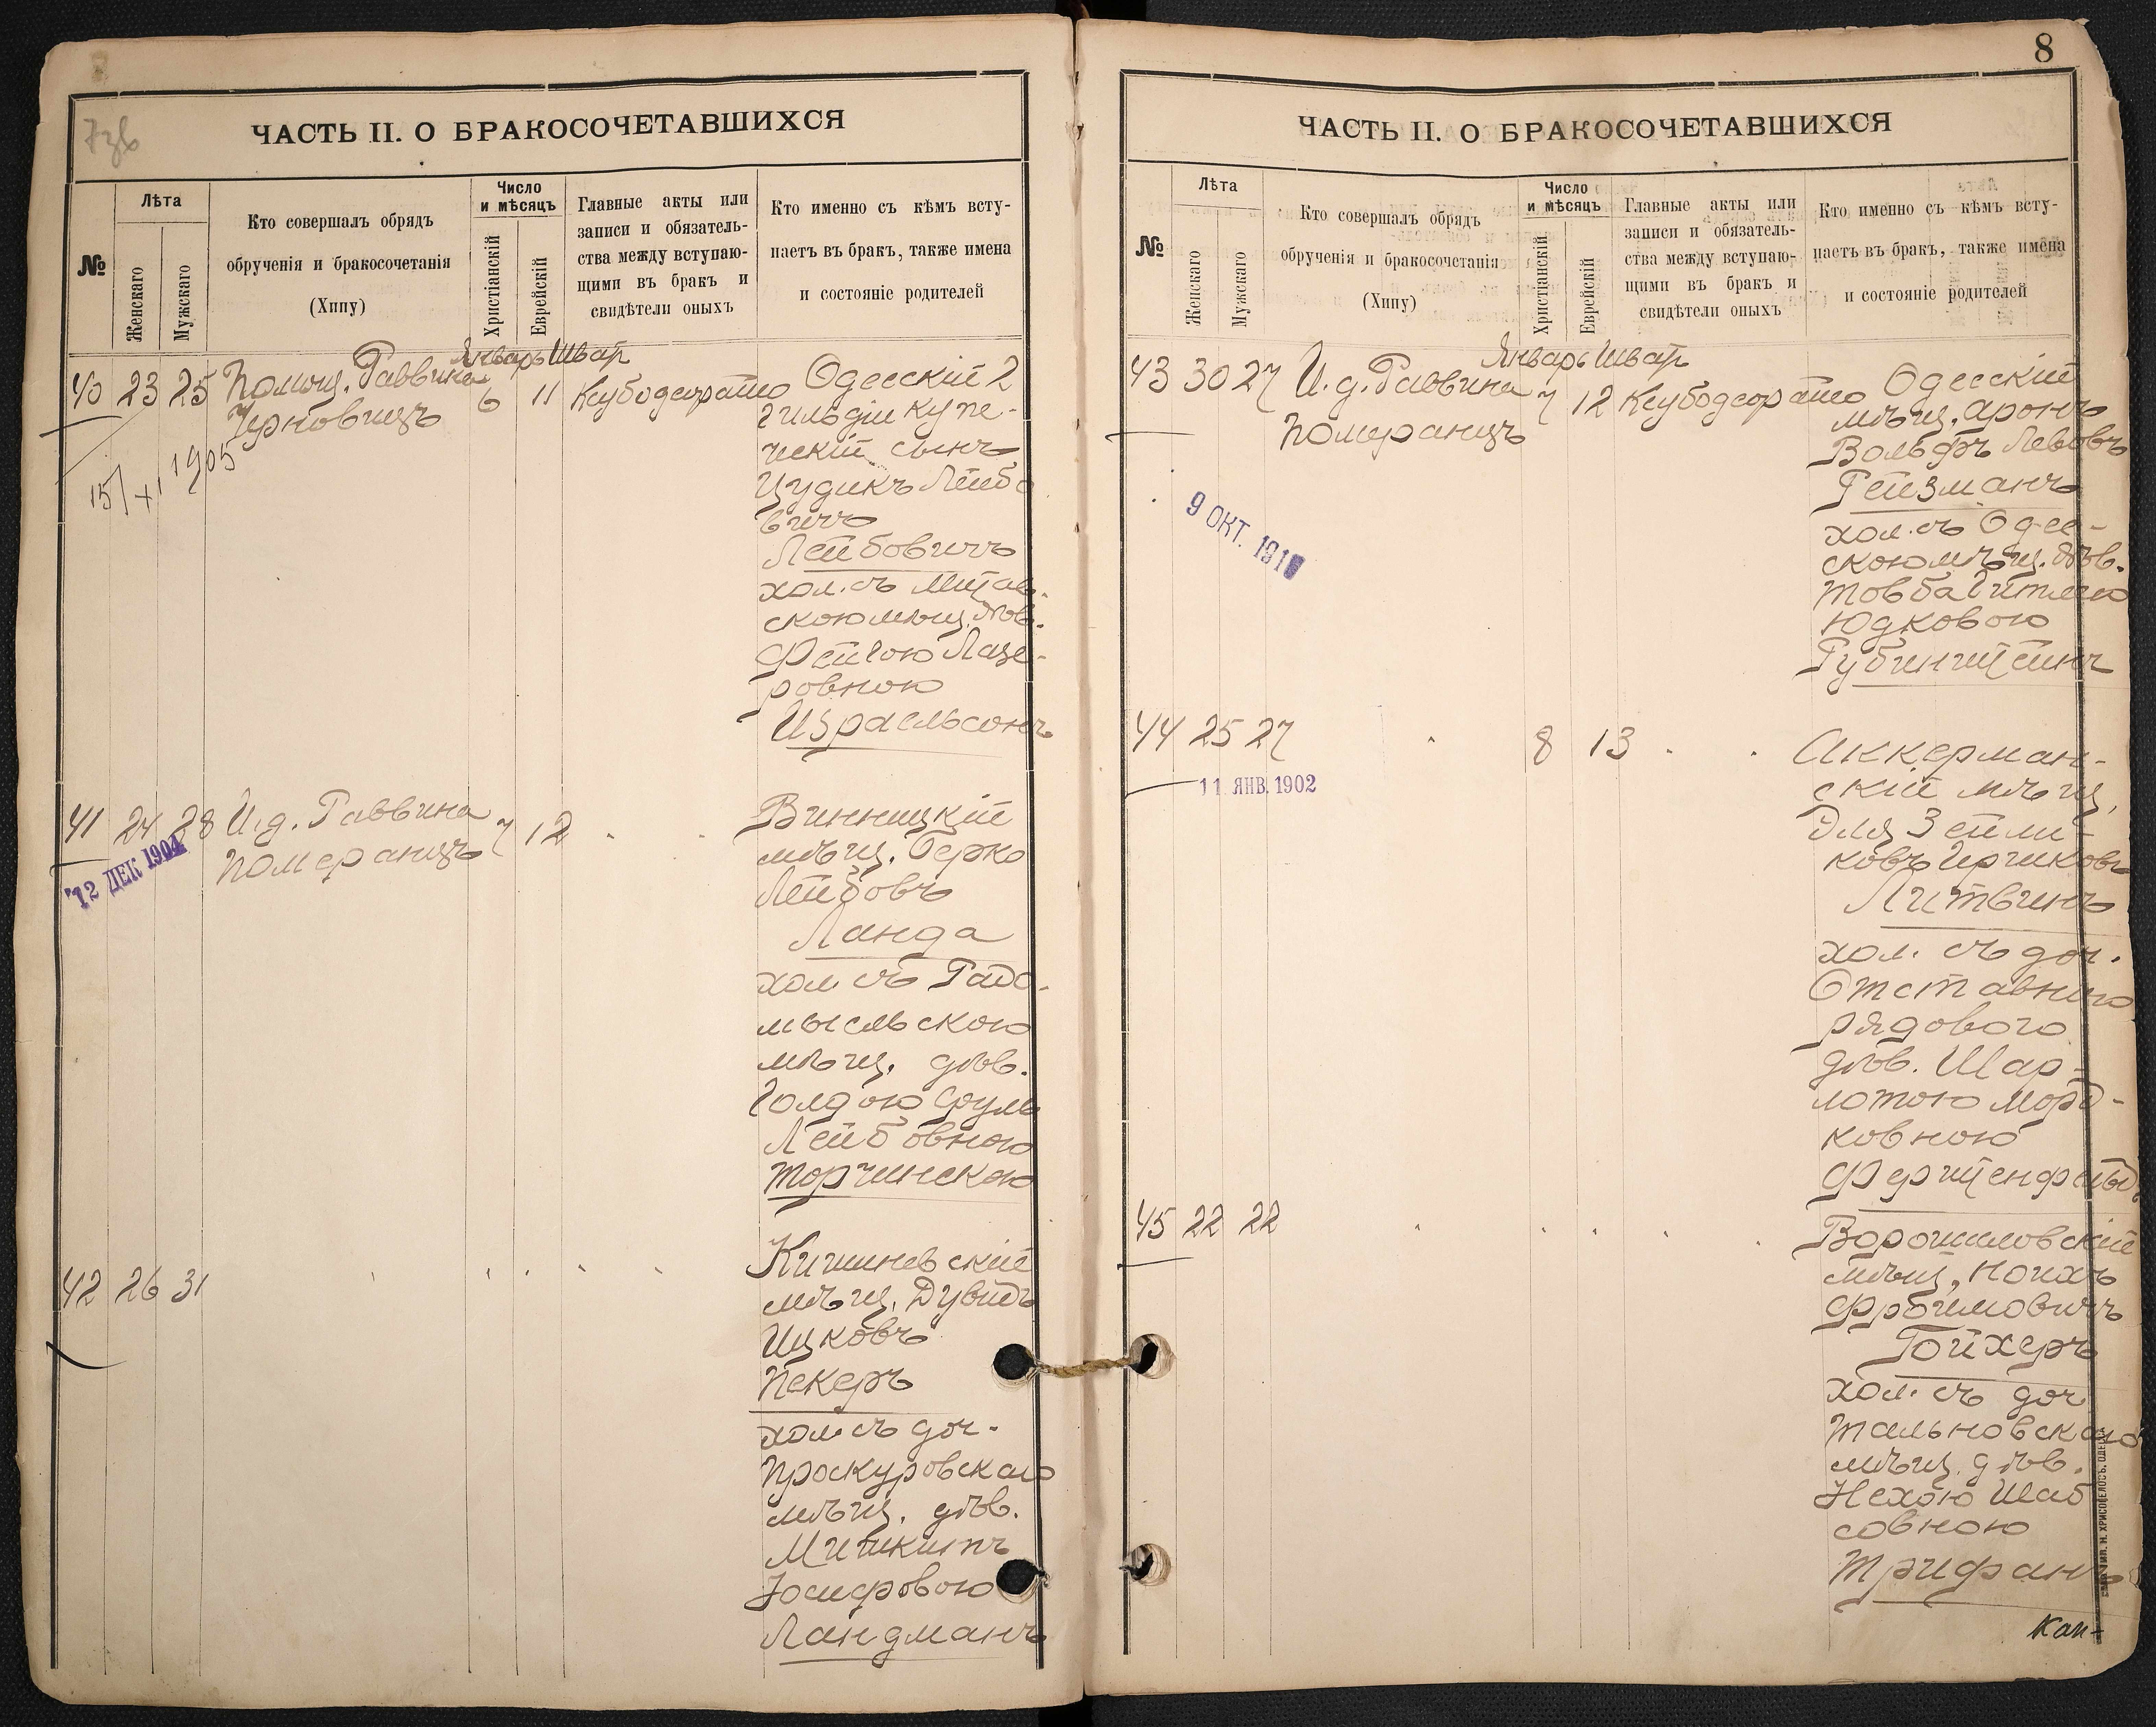 ЧАСТЬ II. О БРАКОСОЧЕТАВШИХСЯ
№
Лѣта
Женскаго
Мужскаго
Кто совершалъ обрядъ
обрученія и бракосочетанія
(Хипу)
Число
и мѣсяцъ
Христіанскій
Еврейскій
Главные акты или
записи и обязатель-
ства между вступаю-
щими въ бракъ и
свидѣтели оныхъ
Кто именно съ кѣмъ всту-
паетъ въ бракъ, также имена
и состояніе родителей
Январь Шват
40 23 25 Помощ. Раввина 6 11 Ксубодеорайто Одесскій 2
Черновицъ
15/XI 1905
гильдіи купе-
ческій сынъ
Цудикъ Лейбо
вичъ
Лейбовичъ
хол. съ Митав-
скою мѣщ. дѣв.
Фейгою Лазе-
ровною
Израельсонъ
41 24 28 И.д. Раввина 7 12 Винницкій
Померанцъ
12 ДЕК 1904
мѣщ. Берко
Лейбовъ
Ланда
хол. съ Радо-
мысльскою
мѣщ. дѣв.
Голдою Сруль
Лейбовною
Торчинскою
42 26 31 Кишиневскій
мѣщ. Дувидъ
Ицковъ
Пекеръ
хол. съ доч.
Проскуровскаго
мѣщ. дѣв.
Юсифовою
Ландманъ
8
ЧАСТЬ II. О БРАКОСОЧЕТАВШИХСЯ
№
Лѣта
Женскаго
Мужскаго
Кто совершалъ обрядъ
обрученія и бракосочетанія
(Хипу)
Число
и мѣсяцъ
Христіанскій
Еврейскій
Главные акты или
записи и обязатель-
ства между вступаю-
щими въ бракъ и
свидѣтели оныхъ
Кто именно съ кѣмъ всту-
паетъ въ бракъ, также имена
и состояніе родителей
Январь Шват
43 30 27 И.д. Раввина 7 12 Ксубодеорайто Одесскій
Померанцъ
9 ОКТ. 191
мѣщ. Аронъ
Вольфъ Левовъ
Рейзманъ
хол. съ Одес-
скою мѣщ. дѣв.
Товба Гитлею
Юдковою
Рубинштейнъ
44 25 27 8 13 Аккерман-
11 ЯНВ. 1902
скій мѣщ.
Эля Зейли-
ковъ Гершковъ
Литвинъ
хол. съ доч.
Отставного
рядового
дѣв. Шар-
лотою Морд-
ковною
Ферштенфельд
45 22 22 Ворошиловскій
мѣщ. Ноихъ
Фроимовичъ
Гойхеръ
хол. съ доч
Тальновскаго
мѣщ. дѣв.
Нехою Шаб
совною
Трифанъ
Кан-